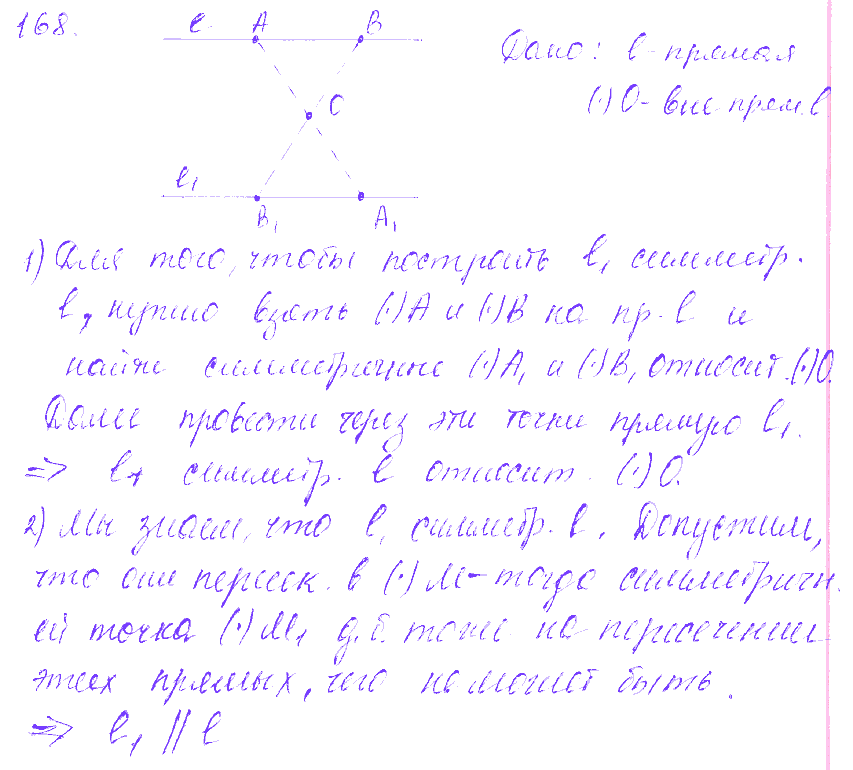 168.
ℓ A B
O
ℓ₁ B₁ A₁
Дано: ℓ - прямая
(·) O - вне прям. ℓ
1) Для того, чтобы построить ℓ₁ симметр.
ℓ, нужно взять (·) A и (·) B на пр. ℓ и
найти симметричные (·) A₁ и (·) B₁ относит. (·) O.
Далее провести через эти точки прямую ℓ₁.
=> ℓ₁ симметр. ℓ относит. (·) O.
2) Мы знаем, что ℓ₁ симметр. ℓ. Допустим,
что они пересек. в (·) M - тогда симметричн.
ей точка (·) M₁ д.б. тоже на пересечении
этих прямых, чего не может быть.
=> ℓ₁ || ℓ